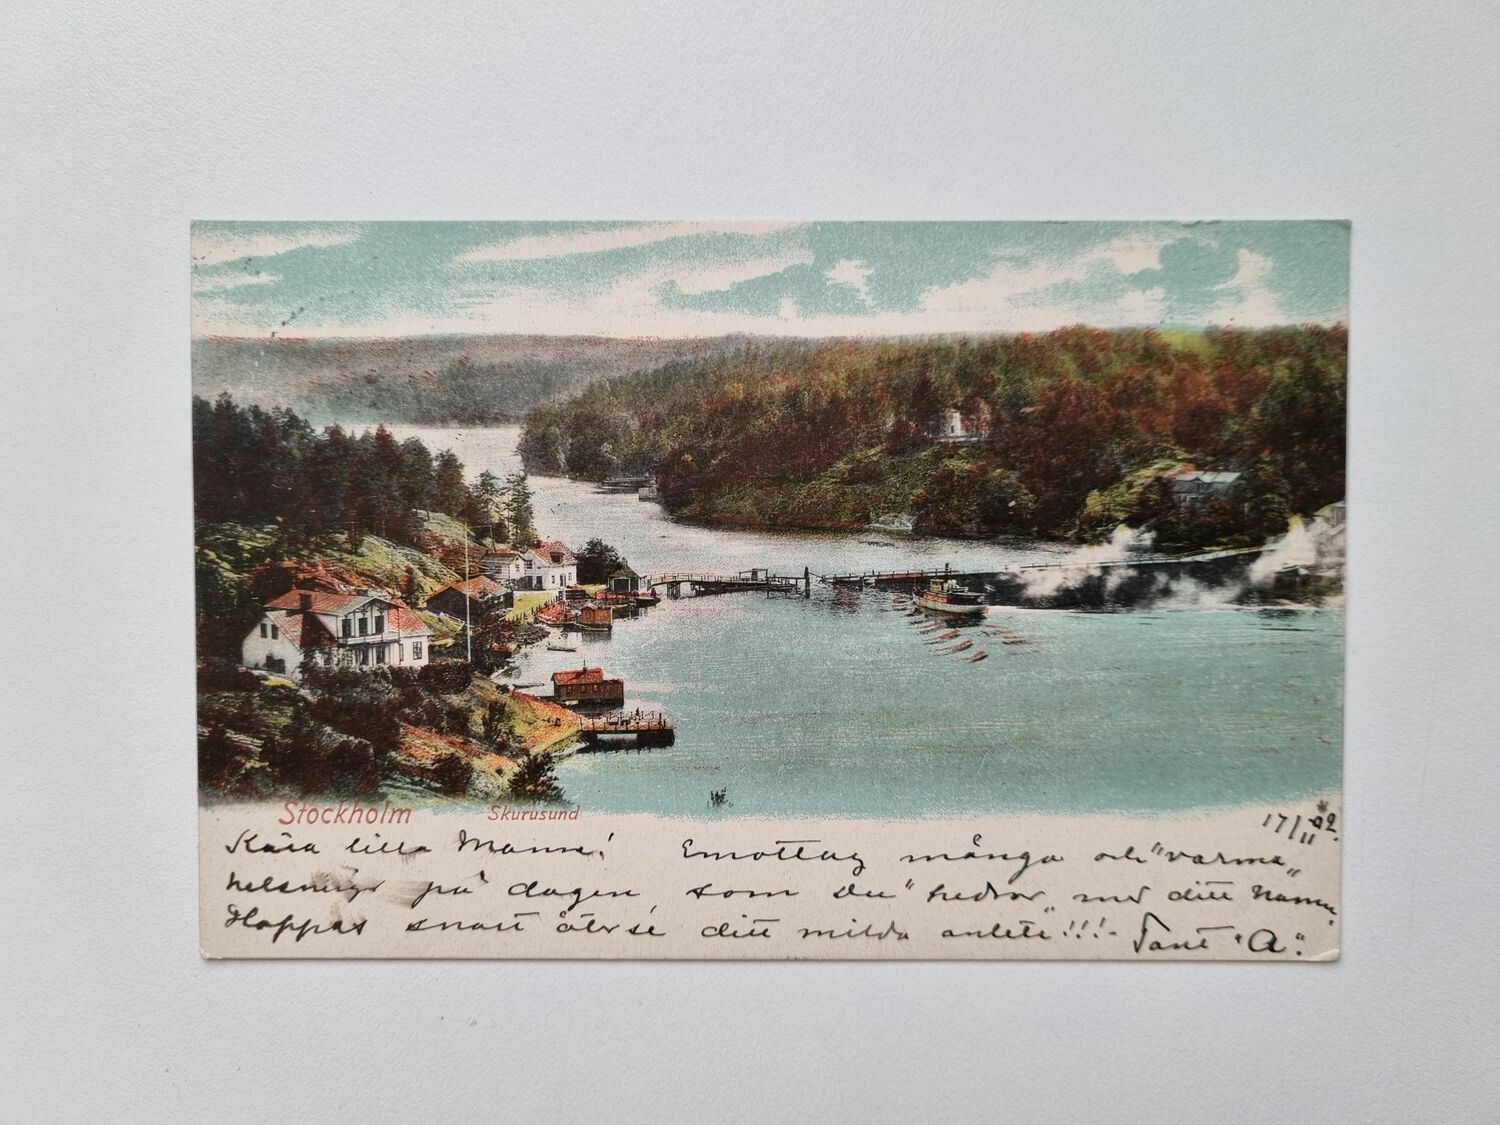 Stockholm Skurusund
17/11 02.
Kära lilla Manne! Emottag många och "varma"
helsningar på dagen, som Du "hedrar" med ditt namn.
Hoppas snart återse ditt milda anlete!!!- Tant "A".